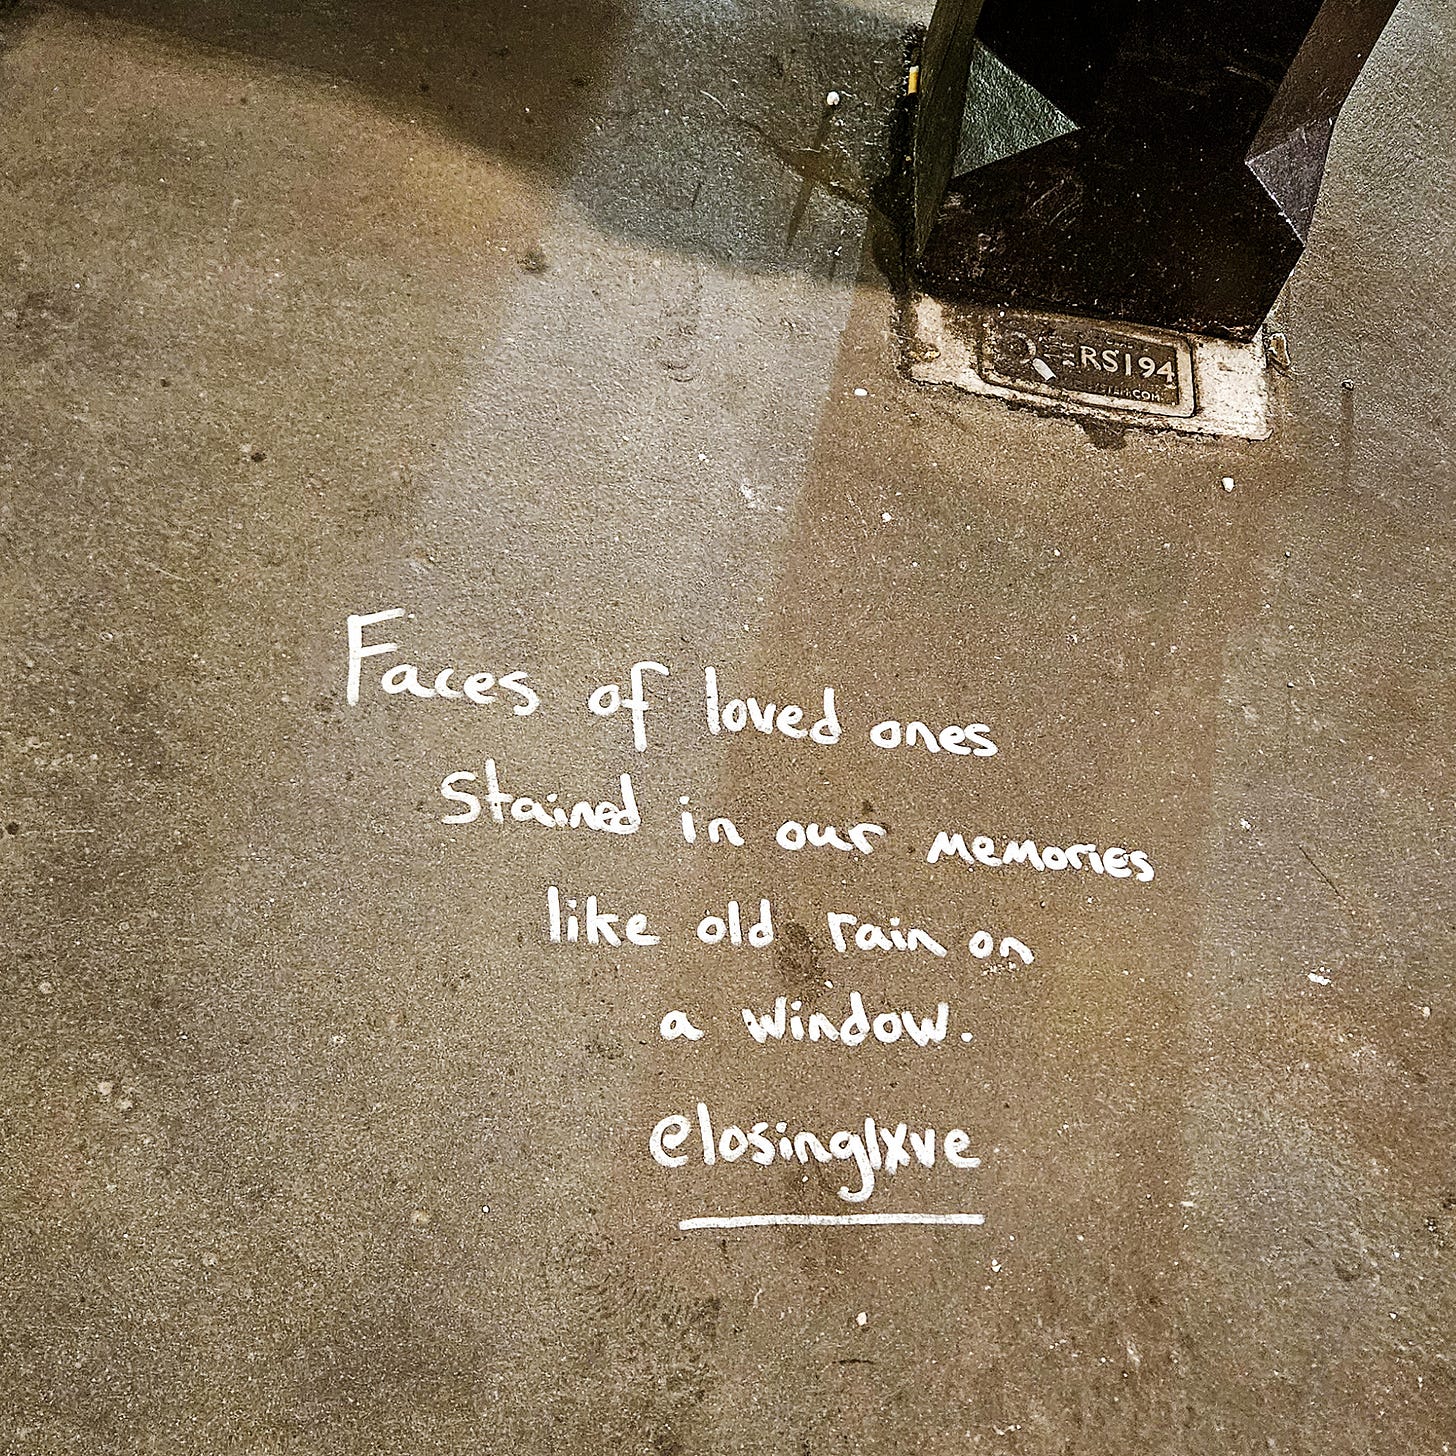 RS194
Faces of loved ones
Stained in our memories
like old rain on
a window.
@losinglxve